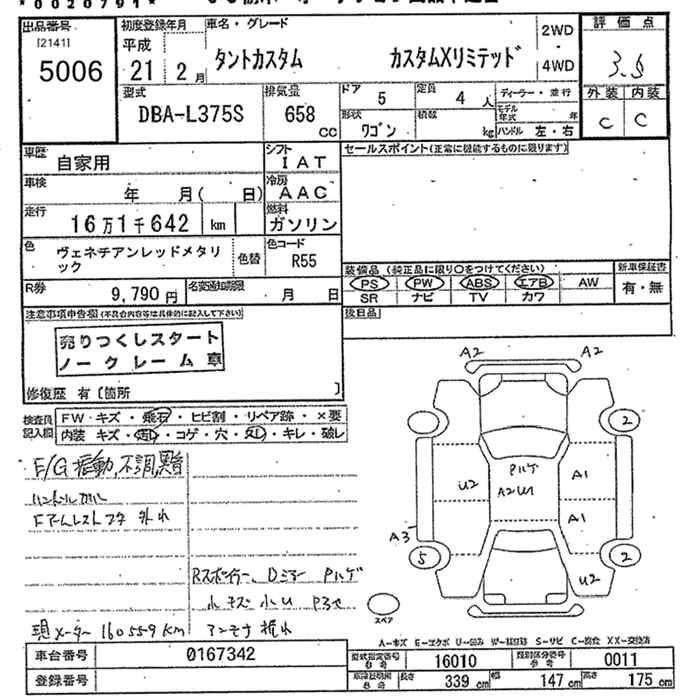 *0020791*
出品番号 初度登録年月 車名・グレード 2WD 評価点
[2141] 平成
5006 21 2月 タントカスタム カスタムXリミテッド 4WD 3.5
型式 排気量 ドア 5 定員 4人 ディーラー・並行 外装 内装
DBA-L375S 658 cc 形状 ワゴン 積載 kg モデル年式 年 C C
ハンドル 左・右
車歴 自家用 シフト IAT セールスポイント(正常に機能するものに限ります)
車検 年 月( 日) 冷房 AAC
走行 16万1千642 km 燃料 ガソリン
色 ヴェネチアンレッドメタリック 色替 色コード R55
装備品(純正品に限り○をつけてください) 新車保証書
R券 9,790円 名変通知期限 月 日 PS PW ABS エアB AW 有・無
SR ナビ TV カワ
注意事項申告欄(不具合内容等は具体的に記入して下さい) 抜目品
売りつくしスタート
ノークレーム車
修復歴 有〔箇所 〕
検査員記入欄 FW・キズ・飛石・ヒビ割・リペア跡・×要
内装 キズ・汚レ・コゲ・穴・スレ・キレ・破レ
E/G振動,不調,異音
Fアームレストフタ 外れ
Rスポイラー、Dミラー Pハゲ
小キズ 小U
現メーター160559KM アンテナ捩れ
A2 A2
2
U2 Pハゲ A2U1 A1
A1
A3
5 2
U2
スペア
A-キズ E-エクボ U-凹み W-補修跡 S-サビ C-腐食 XX-交換済
車台番号 0167342 型式指定番号 参考 16010 類別区分番号 参考 0011
登録番号 車検証明細 参考 長さ 339cm 幅 147cm 高さ 175cm